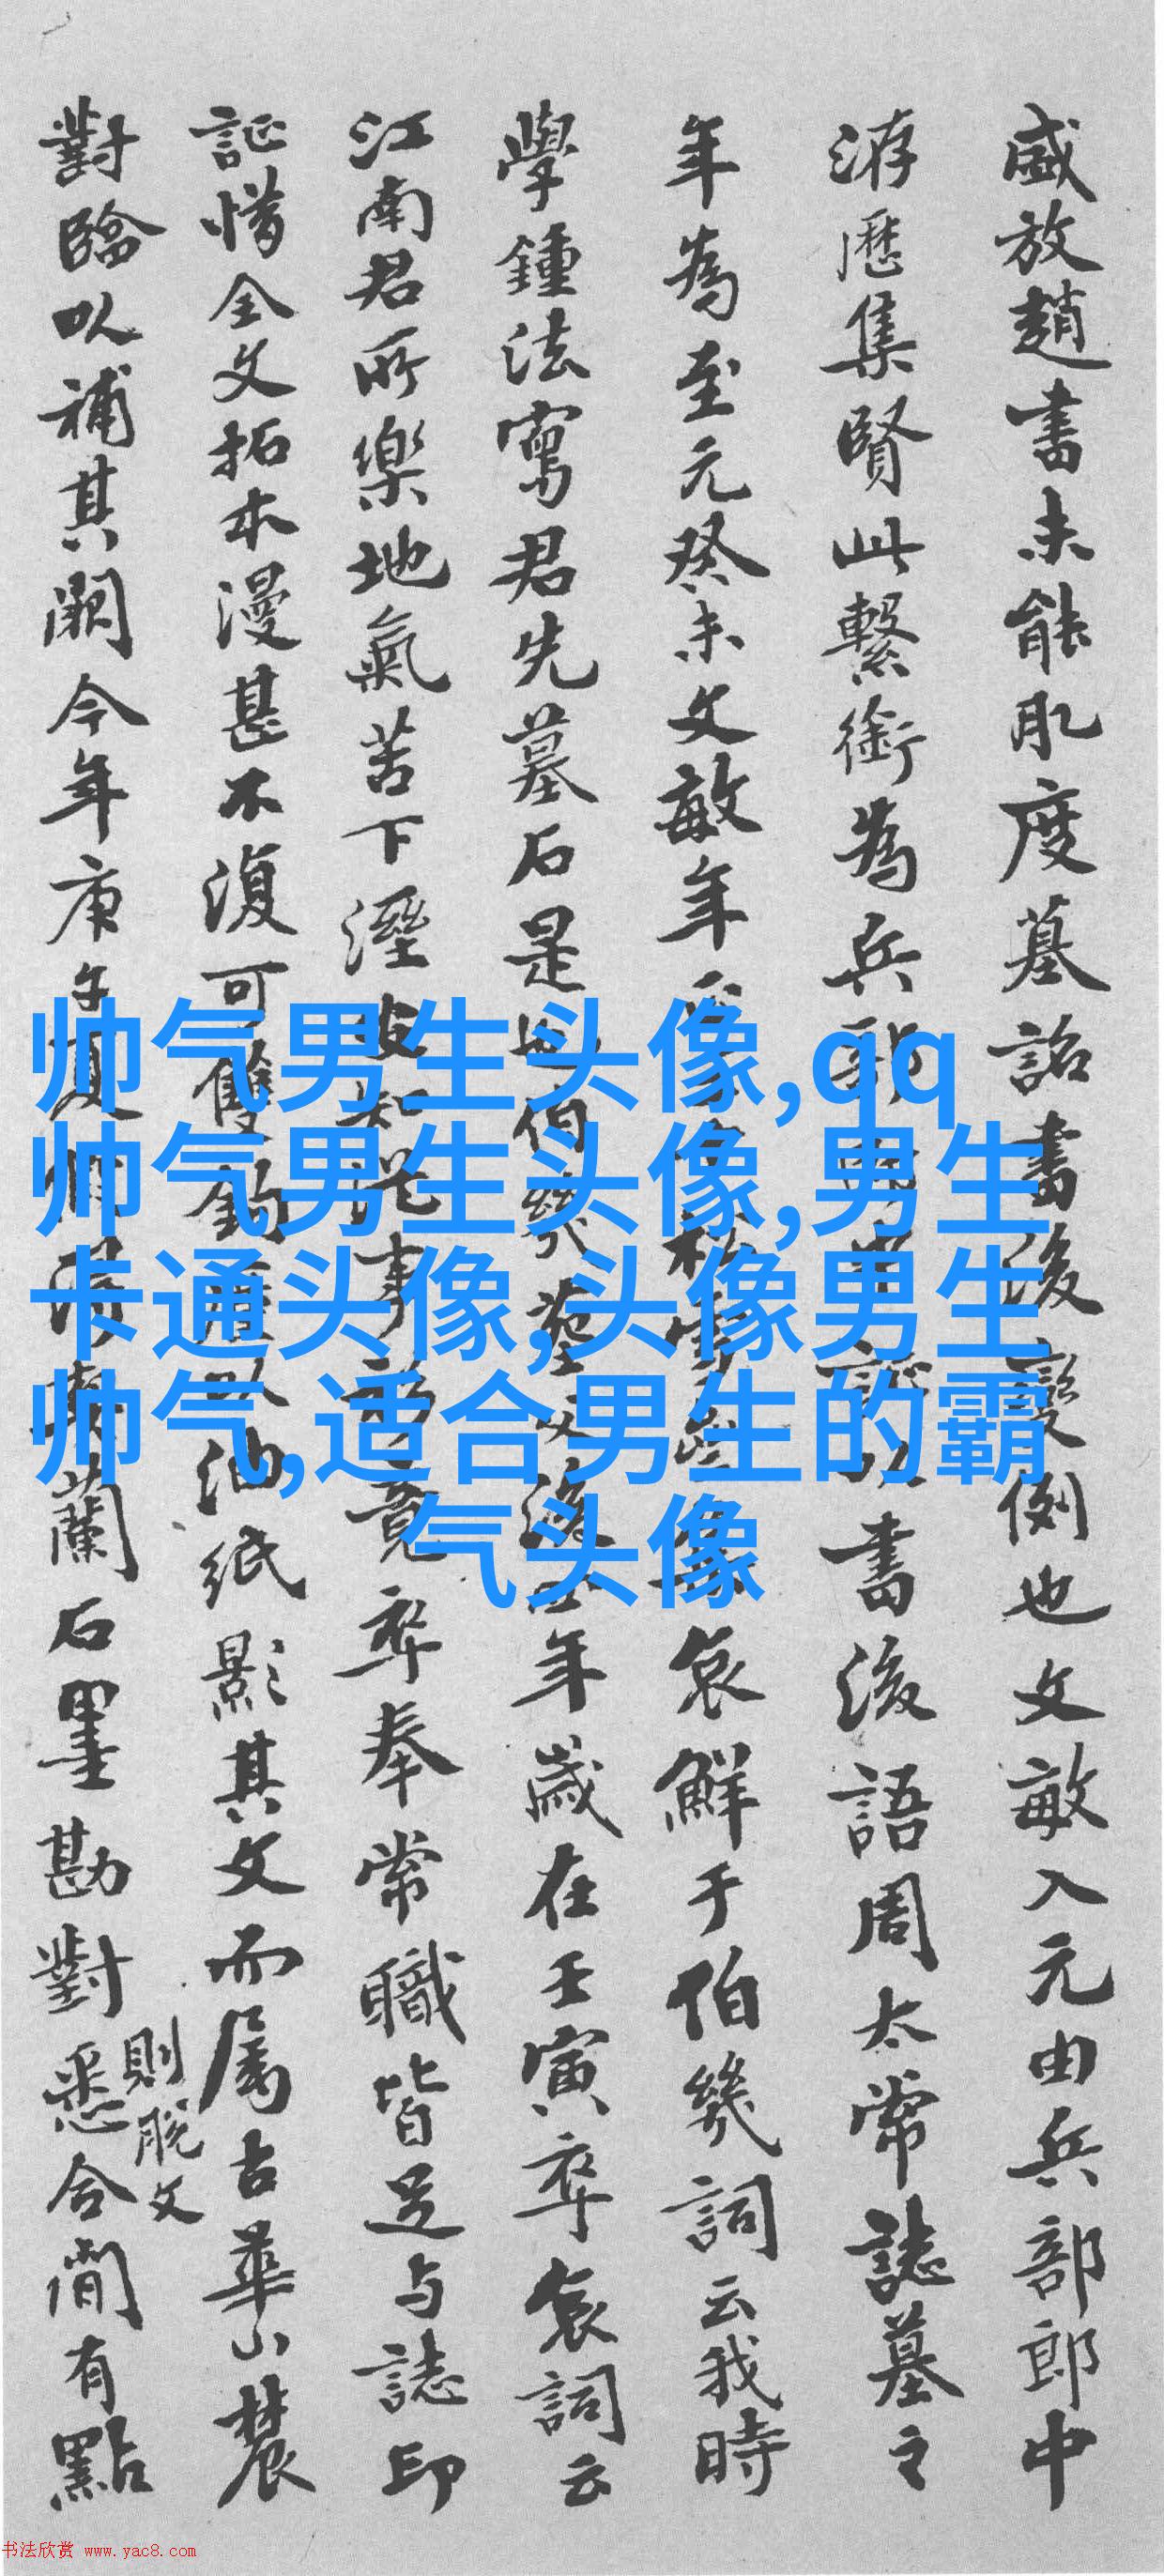 盛放趙書未能肌度墓誌書後變例也文敏入元由兵部郎中
游歷集賢此繫銜為兵部書後語周太常誌墓之
年為至元癸未文敏年哀鮮于伯幾詞云我時
學鍾法寫君先墓石是也伯幾年歲在壬寅卒哀詞云
江南君所樂地氣苦下溼事竟卒奉常職皆足与誌印
証惜全文拓本漫甚不復可雙鉤油紙影其文而属古華山農
對臨以補其闕今年庚午夏蘭石墨勘對悉合間有點
則脱文
帅气男生头像,qq
帅气男生头像,男生
卡通头像,头像男生
帅气,适合男生的霸
气头像
书法欣赏 www.yac8.com